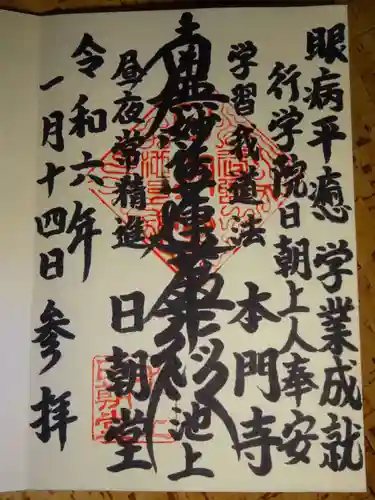 眼病平癒 学業成就
行学院日朝上人奉安
学習我道法 本門寺
南無妙法蓮華経 池上
昼夜常精進 日朝堂
令和六年
一月十四日 参拝